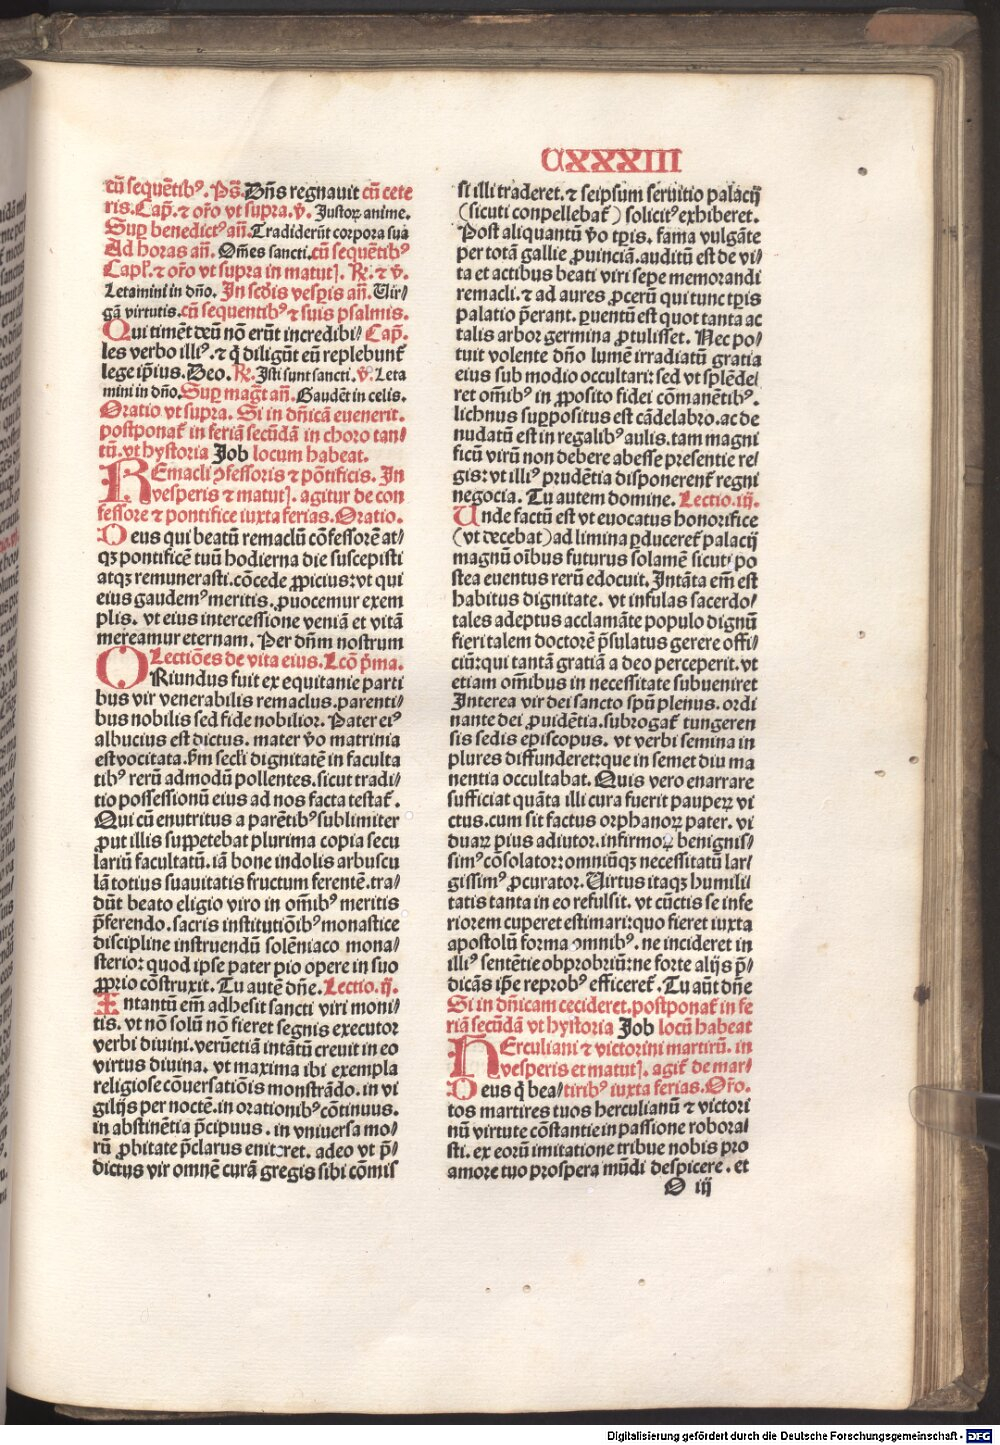 CXXXIII
cū sequētibꝰ. Ps̄. Dn̄s regnauit cū cete
ris. Cap̄. ⁊ or̄o vt supra. v̄. Justoꝝ anime.
Suꝑ benedictꝰ an̄. Tradiderūt corpora sua
Ad horas an̄. Om̄es sancti. cū sequētibꝰ
Capl̓. ⁊ or̄o vt supra in matuť. ℟. ⁊ v̄.
Letamini in dn̄o. In scd̓is vesꝑis an̄. Vir⸗
gā virtutis. cū sequentibꝰ ⁊ suis psalmis.
Qui timēt deū nō erūt incredibi⸗ Cap̄.
les verbo illiꝰ. ⁊ q̇ diligūt eū replebunť
lege ip̄ius. Deo. ℟. Isti sunt sancti. v̄. Leta
mini in dn̄o. Suꝑ maḡt an̄. Gaudēt in celis.
Oratio vt supra. Si in dn̄icā euenerit.
postponať in feriā secūdā in choro tan⸗
tū. vt hystoria Job locum habeat.
REmacli ꝯfessoris ⁊ pōtificis. In
vesperis ⁊ matuť. agitur de con
fessore ⁊ pontifice iuxta ferias. Oratio.
Deus qui beatū remaclū cōfessorē at⸗
qꝫ pontificē tuū hodierna die suscepisti
atqꝫ remunerasti. cōcede ꝓpicius: vt qui
eius gaudemꝰ meritis. ꝓuocemur exem
plis. vt eius intercessione veniā et vitā
mereamur eternam. Per dn̄m nostrum
Lectiōes de vita eius. Lcō p̄ma.
ORiundus fuit ex equitanie parti
bus vir venerabilis remaclus. parenti⸗
bus nobilis sed fide nobilior. Pater eiꝰ
albucius est dictus. mater v̄o matrinia
est vocitata. s̄m secl̓i dignitatē in faculta
tibꝰ rerū admodū pollentes. sicut tradi⸗
tio possessionū eius ad nos facta testať.
Qui cū enutritus a parētibꝰ sublimiter
ꝓut illis suppetebat plurima copia secu
lariū facultatū. iā bone indolis arbuscu
lā totius suauitatis fructum ferentē. tra⸗
dūt beato eligio viro in om̄ibꝰ meritis
p̄ferendo. sacris institutiōibꝰ monastice
discipline instruendū solēniaco mona⸗
sterio: quod ipse pater pio opere in suo
ꝓprio cōstruxit. Tu autē dn̄e. Lectio. ij.
Intantū em̄ adhesit sancti viri moni⸗
tis. vt nō solū nō fieret segnis executor
verbi diuini. verūetiā intātū creuit in eo
virtus diuina. vt maxima ibi exempla
religiose cōuersatiōis monstrādo. in vi
gilijs per noctē. in orationibꝰ cōtinuus.
in abstinētia p̄cipuus. in vniuersa mo⸗
rū ꝓbitate p̄clarus eniteret. adeo vt p̄⸗
dictus vir omnē curā gregis sibi cōmis
si illi traderet. ⁊ seipsum seruitio palacij
(sicuti conpellebať) solicitꝰ exhiberet.
Post aliquantū v̄o tp̄is. fama vulgāte
per totā gallie ꝓuinciā. auditū est de vi⸗
ta et actibus beati viri sepe memorandi
remacli. ⁊ ad aures ꝓcerū qui tunc tp̄is
palatio p̄erant. ꝑuentū est quot tanta ac
talis arbor germina ꝓtulisset. Nec po⸗
tuit volente dn̄o lumē irradiatū gratia
eius sub modio occultari: sed vt splēde⸗
ret om̄ibꝰ in ꝓposito fidei cōmanētibꝰ.
lichnus suꝑpositus est cādelabro. ac de
nudatū est in regalibꝰ aulis. tam magni
ficū virū non debere abesse presentie re⸗
gis: vt illiꝰ prudētia disponerenť regni
negocia. Tu autem domine. Lectio. iij.
Unde factū est vt euocatus honorifice
(vt decebat) ad limina ꝑducereť palacij
magnū oībus futurus solamē sicuti po
stea euentus rerū edocuit. Intāta em̄ est
habitus dignitate. vt infulas sacerdo⸗
tales adeptus acclamāte populo dignū
fieri talem doctorē p̄sulatus gerere offi⸗
ciū: qui tantā gratiā a deo perceperit. vt
etiam om̄ibus in necessitate subueniret
Interea vir dei sancto spū plenus. ordi
nante dei ꝓuidētia. subrogať tungeren
sis sedis episcopus. vt verbi semina in
plures diffunderet: que in semet diu ma
nentia occultabat. Quis vero enarrare
sufficiat quāta illi cura fuerit pauperꝝ vi
ctus. cum sit factus orphanoꝝ pater. vi
duarꝝ pius adiutor. infirmoꝝ benignis⸗
simꝰ cōsolator: omniūqꝫ necessitatū lar⸗
gissimꝰ ꝓcurator. Virtus itaqꝫ humili
tatis tanta in eo refulsit. vt cūctis se infe
riorem cuperet estimari: quo fieret iuxta
apostolū forma omnibꝰ. ne incideret in
illiꝰ sentētie obprobriū: ne forte alijs p̄⸗
dicās ip̄e reprobꝰ efficereť. Tu aūt dn̄e
Si in dn̄icam cecideret. postponať in fe
riā secūdā vt hystoria Job locū habeat
HErculiani ⁊ victorini martirū. in
vesperis et matuť. agiť de mar⸗
Deus q̇ bea⸗ tiribꝰ iuxta ferias. Or̄o.
tos martires tuos herculianū ⁊ victori
nū virtute cōstantie in passione robora⸗
sti. ex eorū imitatione tribue nobis pro
amore tuo prospera mūdi despicere. et
O iij
Digitalisierung gefördert durch die Deutsche Forschungsgemeinschaft - DFG